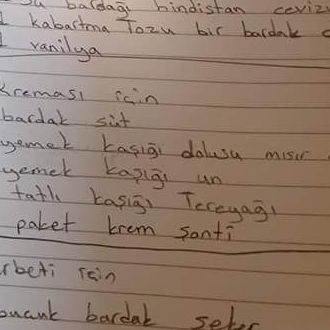 su bardağı hindistan cevizi
1 kabartma Tozu bir bardak
1 vanilya
Kreması için
bardak süt
yemek kaşığı dolusu mısır
yemek kaşığı un
tatlı kaşığı Tereyağı
paket krem şanti
rbeti için
bardak şeker